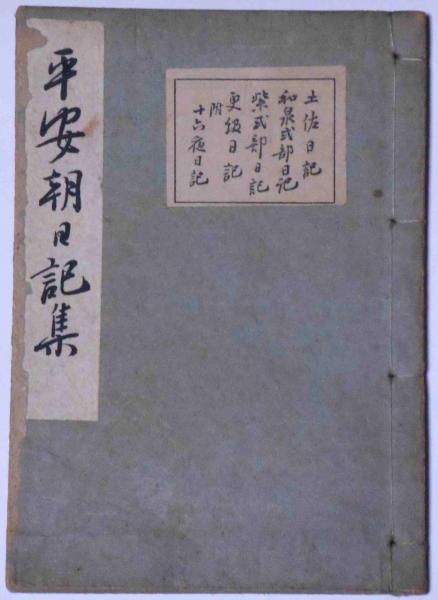 平安朝日記集
土佐日記
和泉式部日記
紫式部日記
更級日記
附
十六夜日記